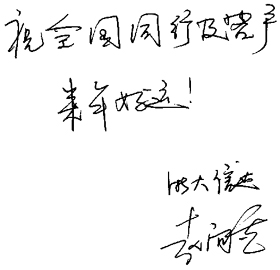 祝全国同行及客户
来年好运!
浙大信达